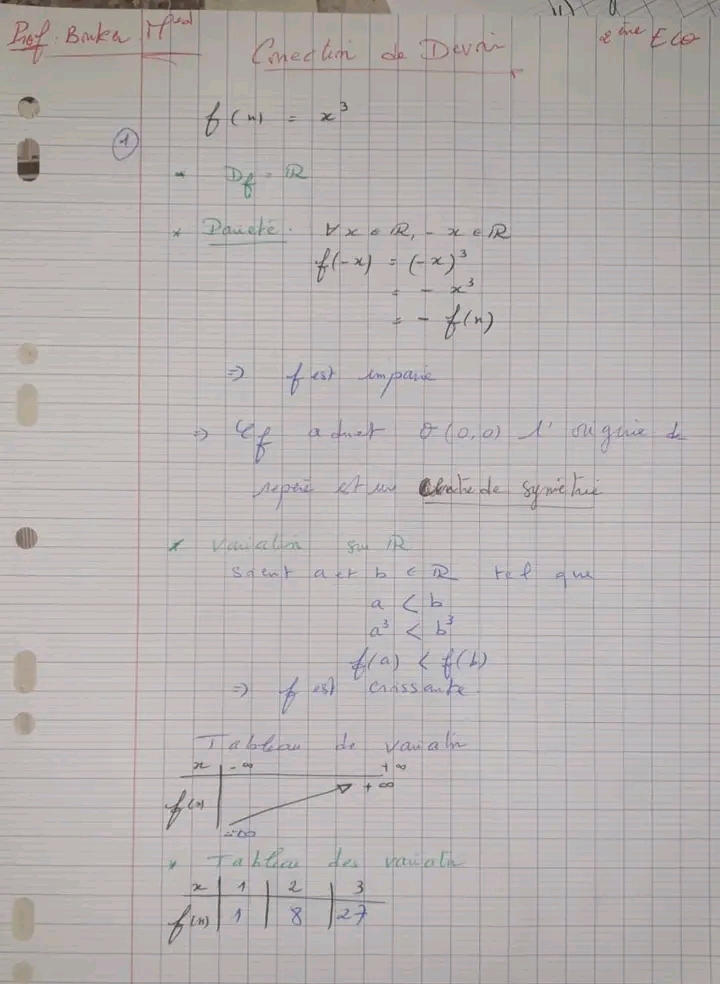 Prof. Bouker Med
Correction de Devoir
2ème ECO
f(x) = x³
①
- Df = ℝ
* Parité. ∀ x ∈ ℝ, - x ∈ ℝ
f(-x) = (-x)³
= - x³
= - f(x)
⇒ f est impaire
⇒ 𝒞f admet O(0,0) l'origine de
repère est un centre de symétrie
* Variation sur ℝ
Soient a et b ∈ ℝ tel que
a < b
a³ < b³
f(a) < f(b)
⇒ f est croissante.
Tableau de variatn
x | -∞ +∞
f(x) +∞
-∞
* Tableau des variatn
x | 1 | 2 | 3
f(x) | 1 | 8 | 27